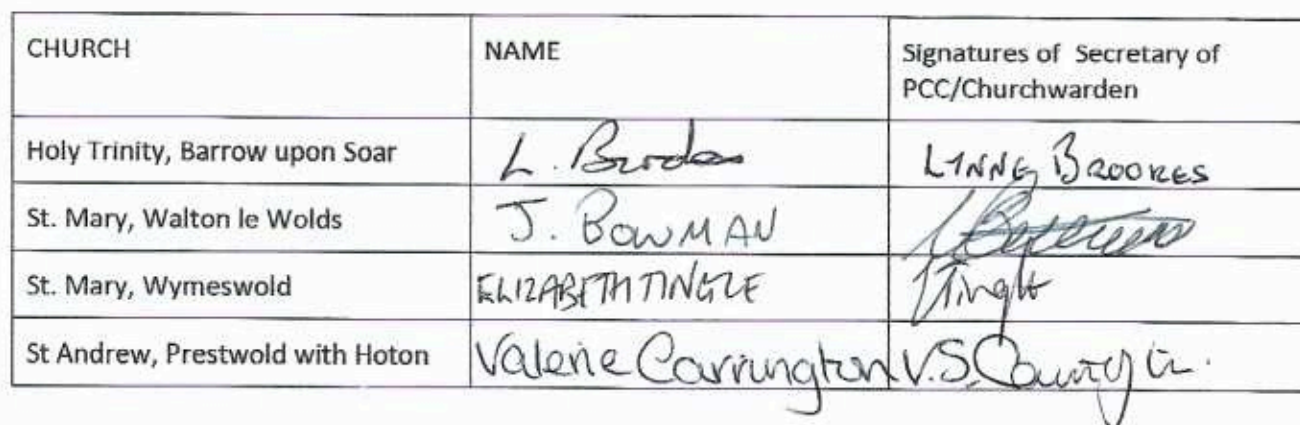 CHURCH NAME Signatures of Secretary of
PCC/Churchwarden
Holy Trinity, Barrow upon Soar L. LYNNE BROOKES
St. Mary, Walton le Wolds J. BOWMAN
St. Mary, Wymeswold ELIZABETH TINGLE Tingle
St Andrew, Prestwold with Hoton Valerie Carrington V.S.